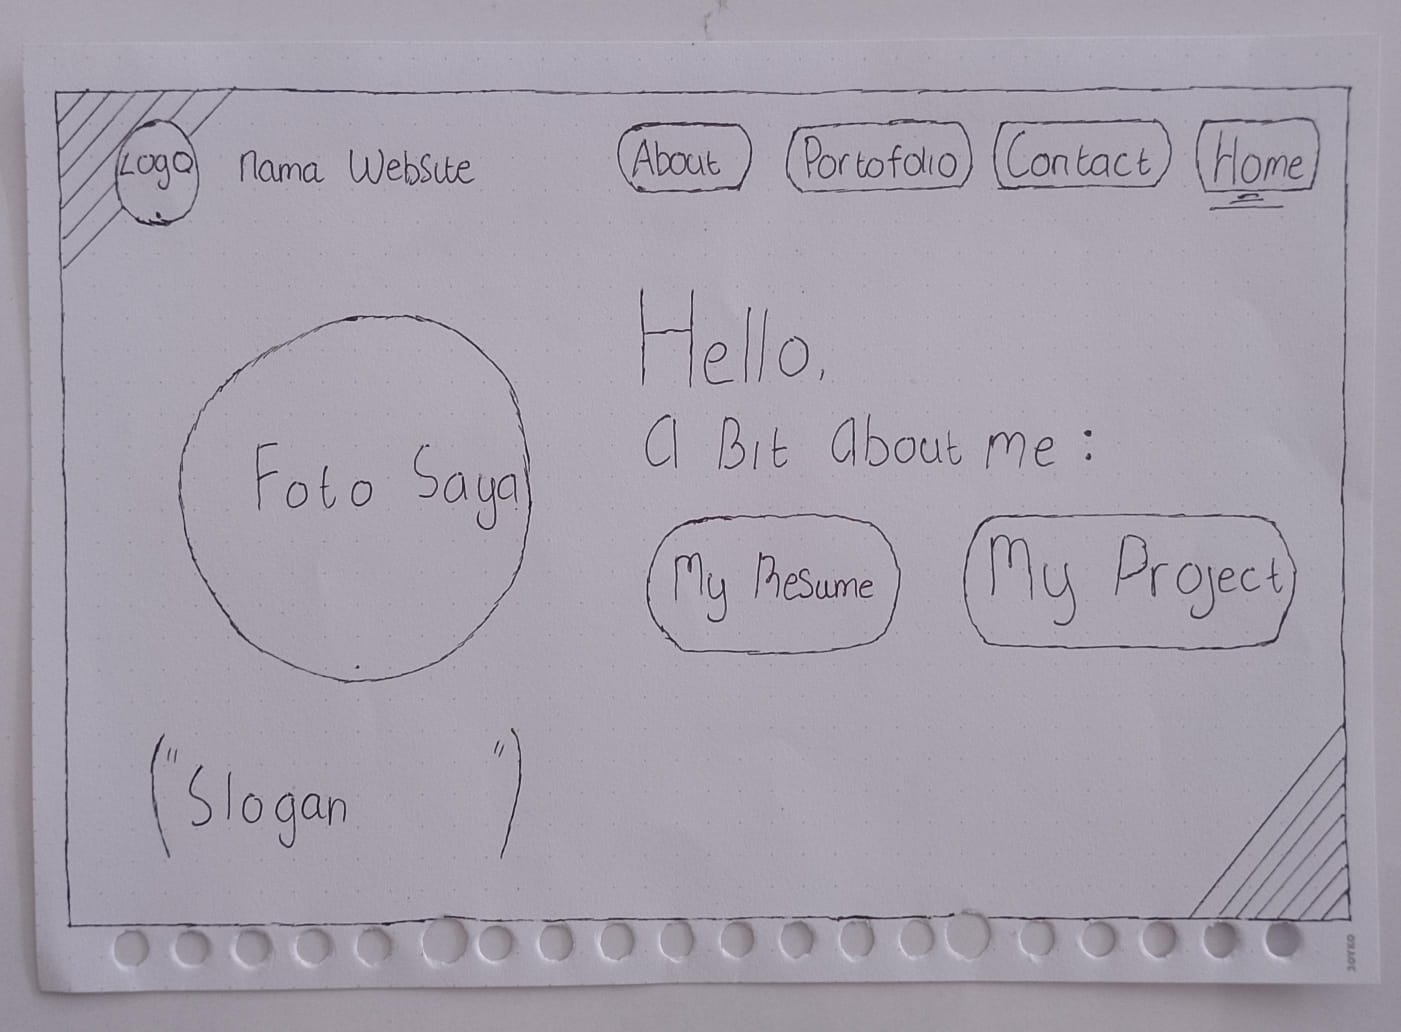 Logo Nama Website About Portofolio Contact Home
Hello,
A Bit About me :
Foto Saya
My Resume My Project
("Slogan ")
JOYKO